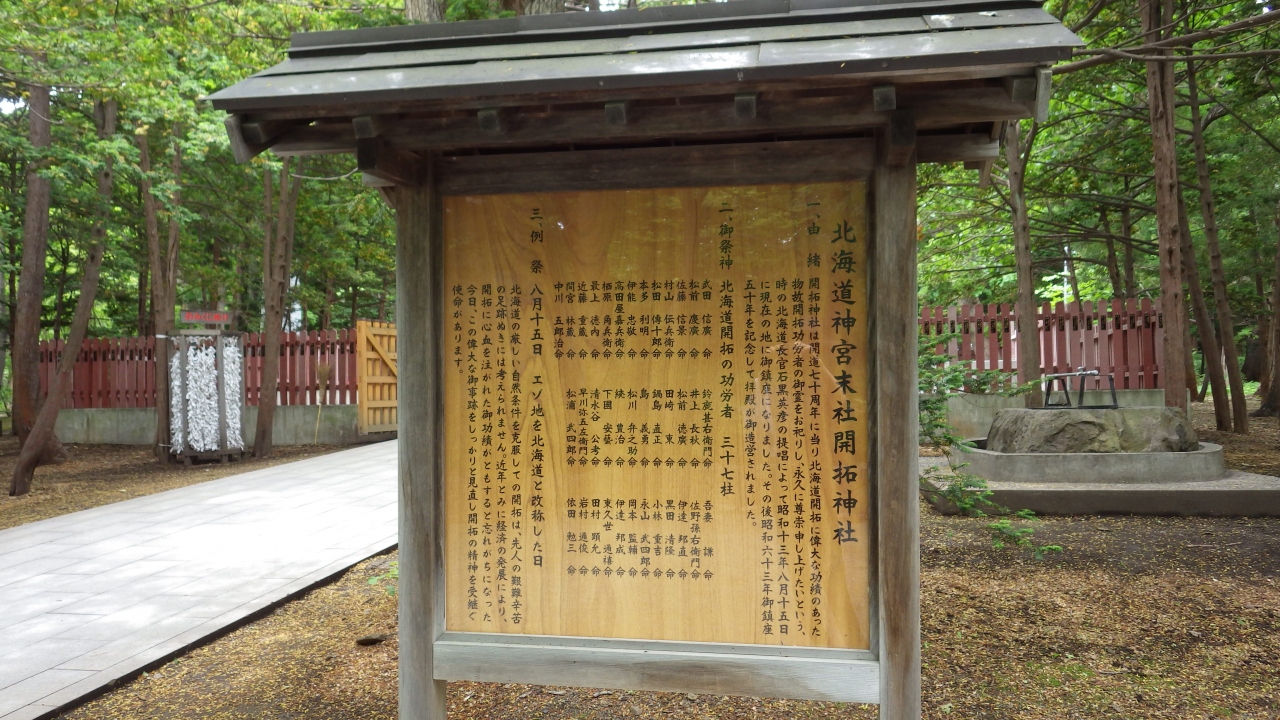 北海道神宮末社開拓神社
一、由 緒 開拓神社は開道七十周年に当り北海道開拓に偉大な功績のあった
物故開拓功労者の御霊をお祀りし、永久に尊崇申し上げたいという、
時の北海道長官石黒英彦の提唱によって昭和十三年八月十五日
に現在の地に御鎮座になりました。その後昭和六十三年御鎮座
五十年を記念して拝殿が御造営されました。
二、御祭神 北海道開拓の功労者 三十七柱
武田 信廣 命 鈴鹿甚右衛門命 吾妻 謙 命
松前 慶廣 命 井上 長秋 命 佐野孫右衛門命
佐藤 信景 命 松前 徳廣 命 伊達 邦直 命
村山 伝兵衛 命 田崎 東 命 黒田 清隆 命
松田 伝十郎 命 鍋島 直正 命 小林 重吉 命
本多 利明 命 島 義勇 命 永山 武四郎 命
伊能 忠敬 命 松川 弁之助 命 岡本 監輔 命
高田屋嘉兵衛 命 続 豊治 命 伊達 邦成 命
栖原 角兵衛 命 下國 安藝 命 東久世 通禧 命
最上 徳内 命 清水谷 公考 命 田村 顕允 命
近藤 重蔵 命 早川 弥五左衛門命 岩村 通俊 命
間宮 林蔵 命 松浦 武四郎 命 依田 勉三 命
中川 五郎治 命
三、例 祭 八月十五日 エゾ地を北海道と改称した日
北海道の厳しい自然条件を克服しての開拓は、先人の艱難辛苦
の足跡ぬきには考えられません。近年とみに経済の発展により、
開拓に心血を注がれた御功績がともすると忘れがちになった
今日、この偉大な御事跡をしっかりと見直し開拓の精神を受継ぐ
使命があります。